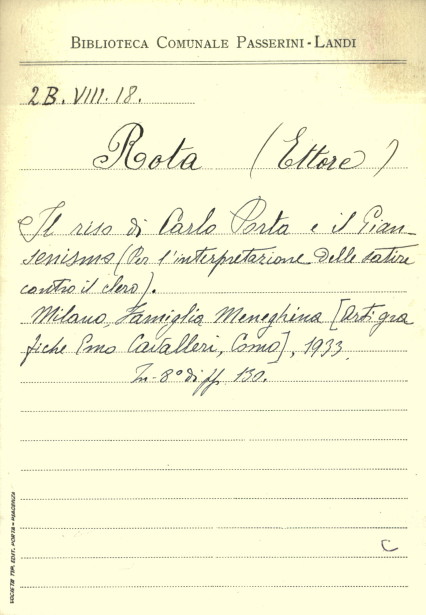 BIBLIOTECA COMUNALE PASSERINI-LANDI
2B. VIII. 18.
Rota (Ettore)
Il riso di Carlo Porta e il Gian-
senismo (Per l'interpretazione delle satire
contro il clero).
Milano, Famiglia Meneghina [Arti gra
fiche Emo Cavalleri, Como], 1933.
In-8° di pp. 130.
C
SOCIETÀ TIP. EDIT. PORTA - PIACENZA